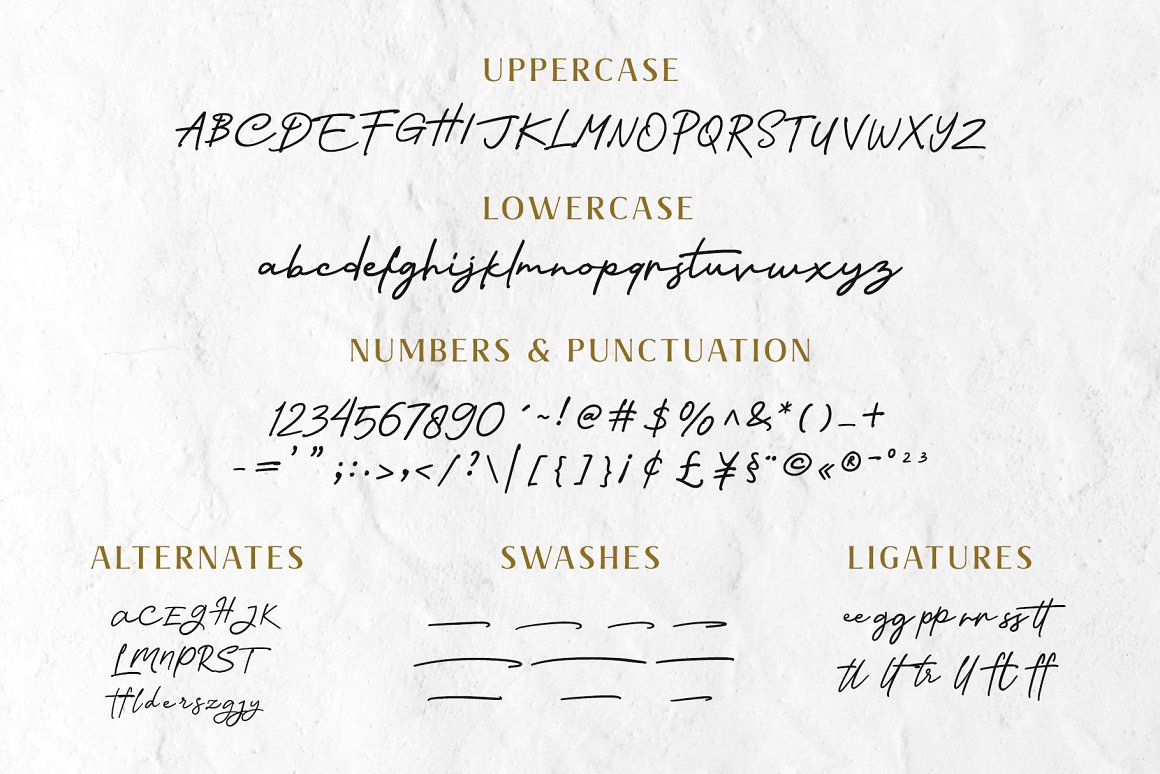 UPPERCASE
ABCDEFGHIJKLMNOPQRSTUVWXYZ
LOWERCASE
abcdefghijklmnopqrstuvwxyz
NUMBERS & PUNCTUATION
1234567890 ´~!@#$%^&*()_+
-='";:.>,</?\|[{]}¡¢£¥§¨©«®¯º²³
ALTERNATES
ACEGHJK
LMNPRST
tflderszgjy
SWASHES
LIGATURES
ee gg pp rr ss tt
tl lt tr ll ft ff